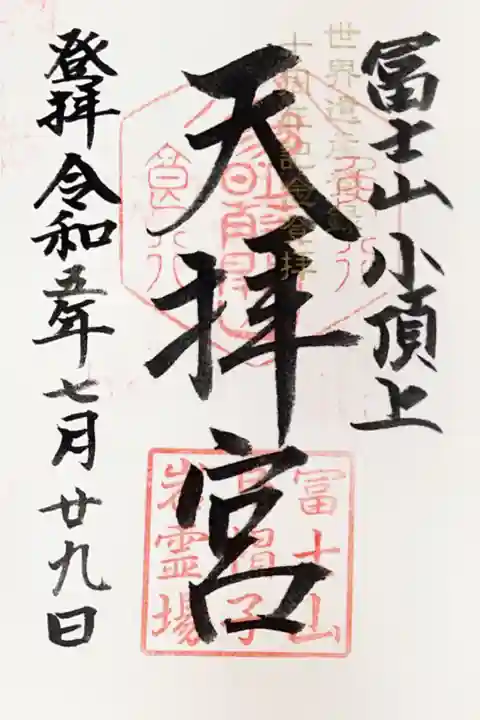 冨士山小頂上
世界遺産登録
十周年記念登拝
天拝宮
登拝令和五年七月廿九日
冨士山
岩霊場